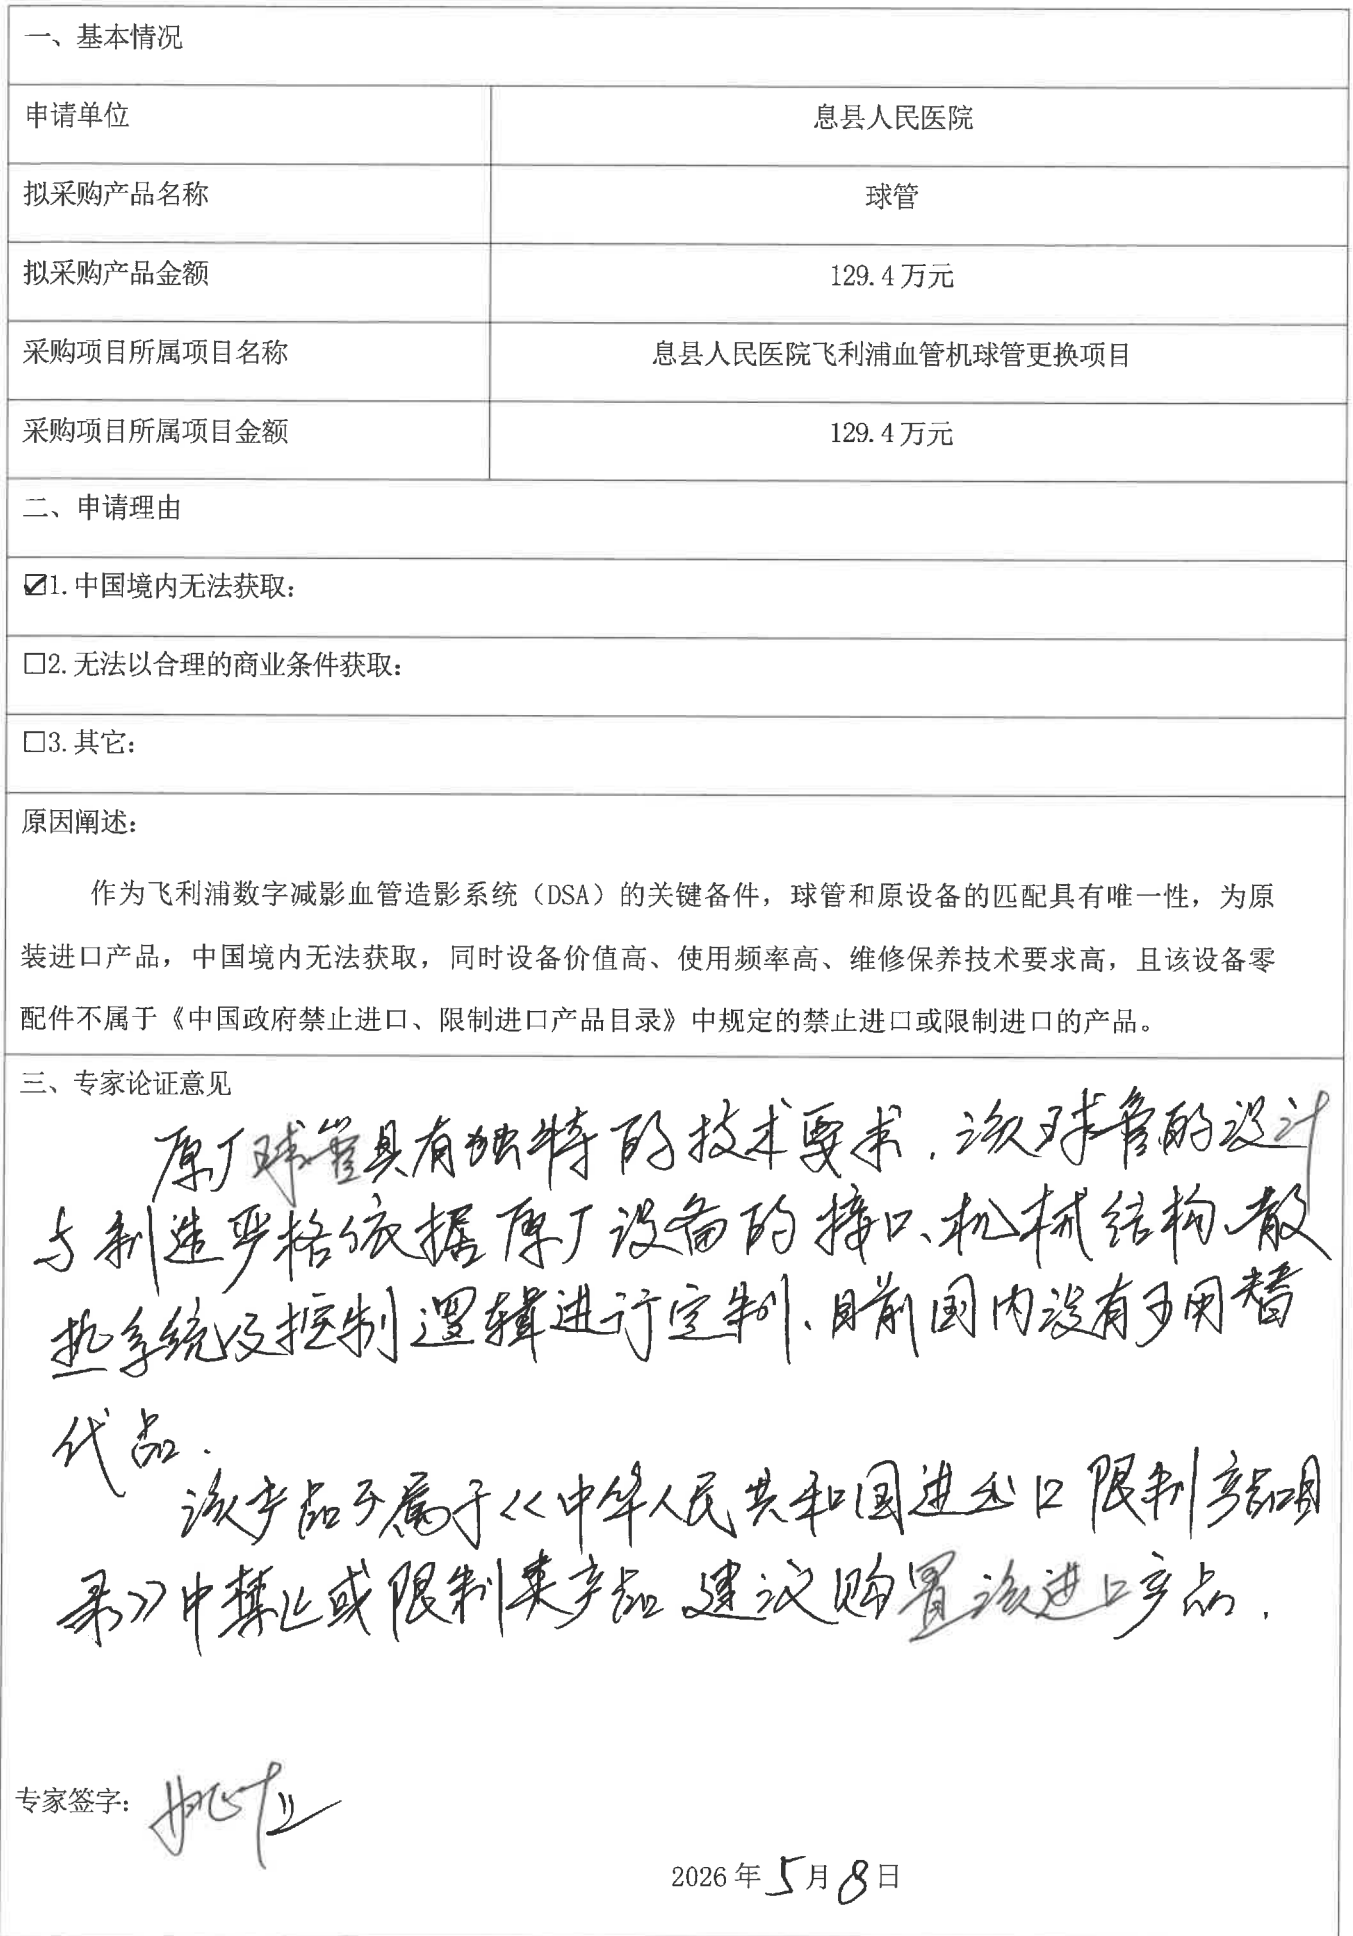 一、基本情况
申请单位 息县人民医院
拟采购产品名称 球管
拟采购产品金额 129.4万元
采购项目所属项目名称 息县人民医院飞利浦血管机球管更换项目
采购项目所属项目金额 129.4万元
二、申请理由
☑1.中国境内无法获取：
□2.无法以合理的商业条件获取：
□3.其它：
原因阐述：
作为飞利浦数字减影血管造影系统（DSA）的关键备件，球管和原设备的匹配具有唯一性，为原
装进口产品，中国境内无法获取，同时设备价值高、使用频率高、维修保养技术要求高，且该设备零
配件不属于《中国政府禁止进口、限制进口产品目录》中规定的禁止进口或限制进口的产品。
三、专家论证意见
原厂球管具有独特的技术要求，该球管的设计
与制造严格依据原厂设备的接口、机械结构、散
热系统及控制逻辑进行定制、目前国内没有可用替
代品.
该产品不属于《中华人民共和国进出口限制产品目
录》中禁止或限制类产品 建议购置该进口产品.
专家签字：
2026年5月8日